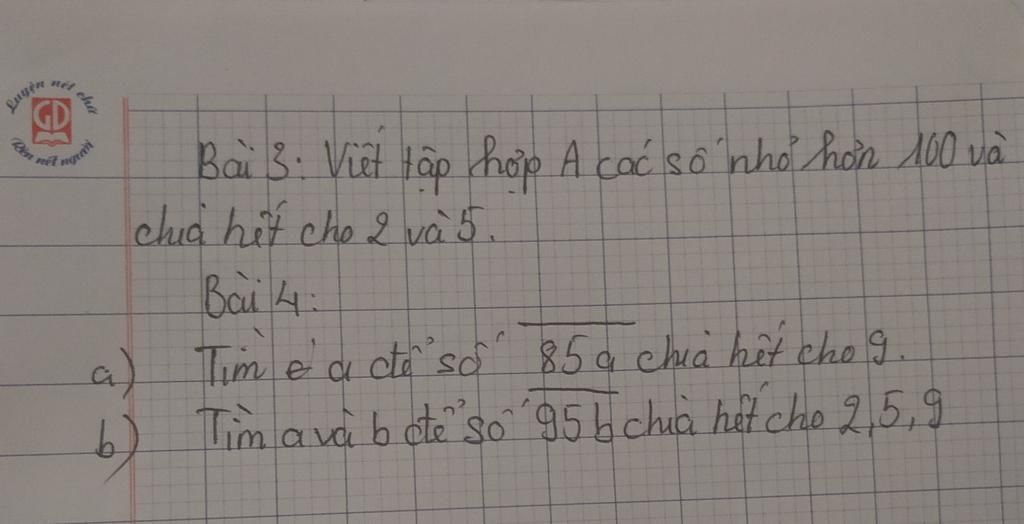 Luyện nét chữ
GD
Rèn nét người
Bài 3: Viết tập hợp A các số nhỏ hơn 100 và
chia hết cho 2 và 5.
Bài 4:
a) Tìm a để số 85a chia hết cho 9.
b) Tìm a và b để số 95b chia hết cho 2, 5, 9